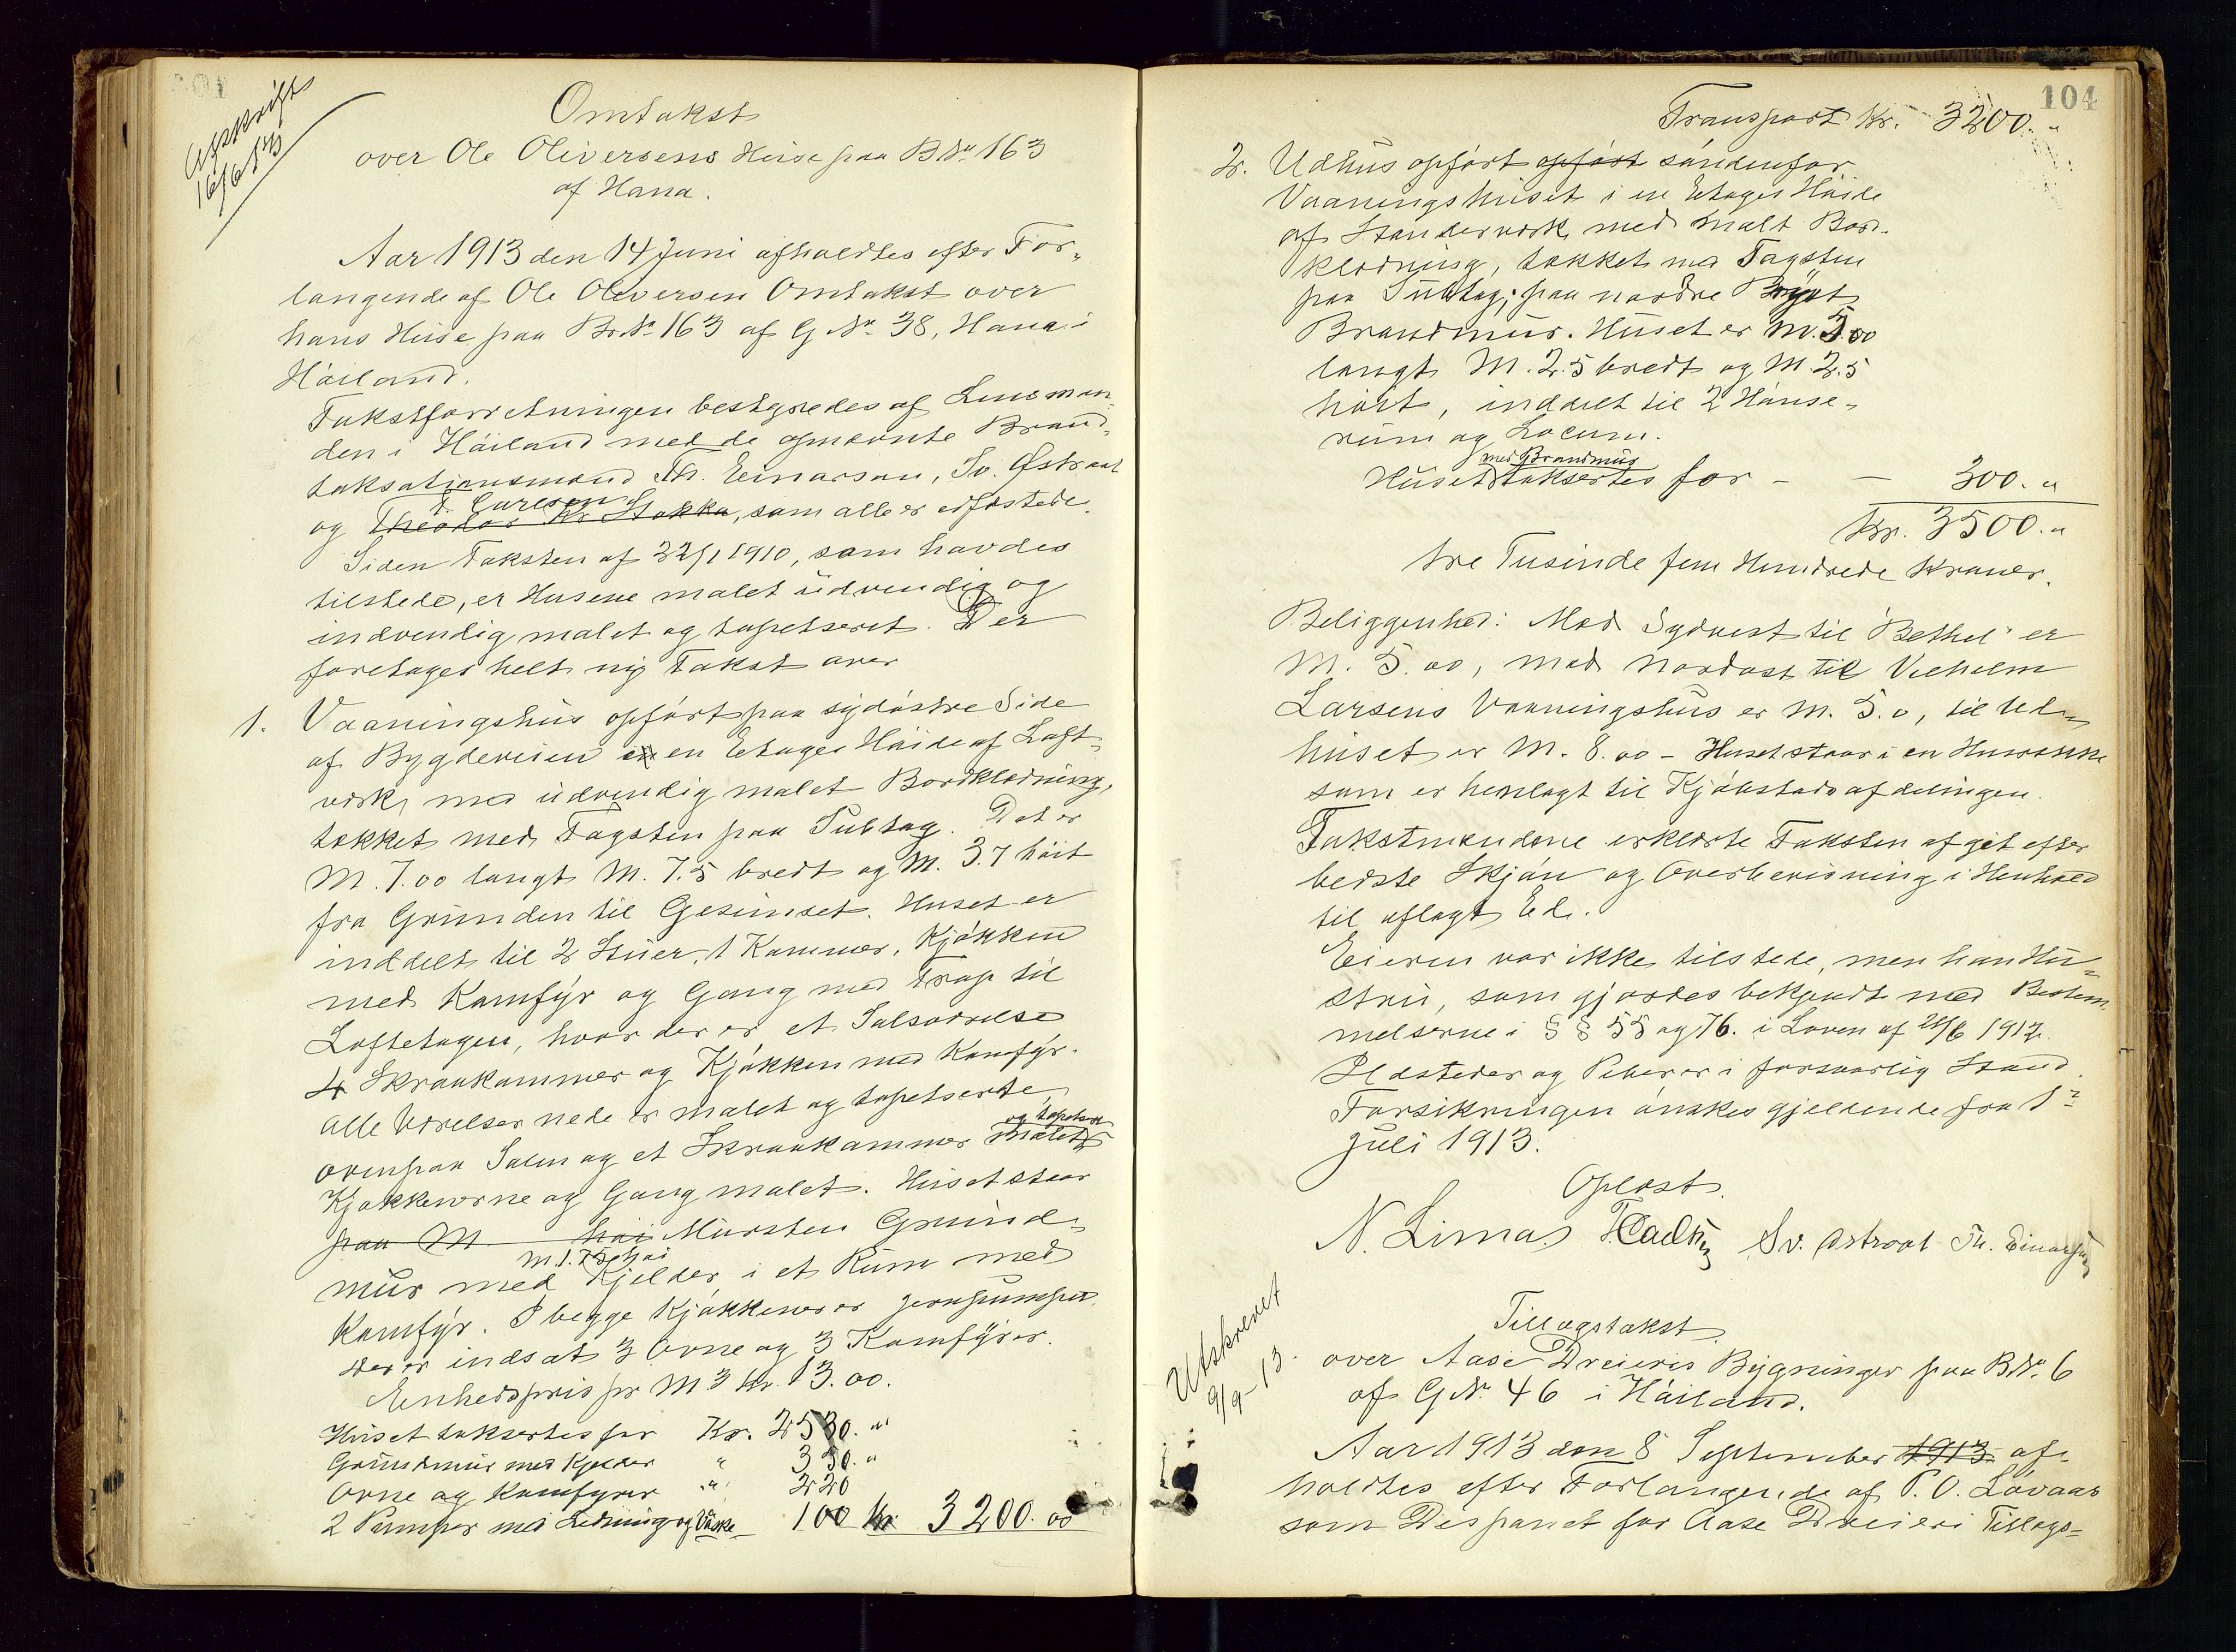 Afskrift
16/6 1913
Omtakst
over Ole Oliversens Huse paa B.Nr. 163
af Hana.
Aar 1913 den 14 Juni afholdtes efter For-
langende af Ole Oliversen Omtakst over
hans Huse paa Br.Nr. 163 af G.Nr. 38, Hana i
Høiland.
Takstforretningen bestyredes af Lensman-
den i Høiland med de opnævnte Brand-
taksationsmænd Th. Einarsen, Sv. Østraat
T. Carlsen
og Theodor Kr. Stokka, som alle er edfæstede.
Siden Taksten af 22/1 1910, som havdes
tilstede, er Husene malet udvendig og
indvendig malet og tapetseret. Der
foretages helt ny Takst over
1. Vaaningshus opført paa sydøstre Side
af Bygdeveien i en Etages Høide af Laft-
værk, med udvendig malet Bordklædning,
tækket med Tagsten paa Sutag. Det er
M. 7.00 langt M. 7.5 bredt og M. 3.7 høit
fra Grunden til Gesimset. Huset er
inddelt til 2 Stuer, 1 Kammer, Kjøkken
med Komfyr og Gang med Trap til
Loftetagen, hvor der er et Salsværelse
4 Skraakammer og Kjøkken med Komfyr.
Alle Værelser nede er malet og tapetserte,
og tapetser
ovenpaa Salen og et Skraakammer malet
Kjøkkenerne og Gang malet. Huset staar
paa M høi Mursten Grund-
M. 1.75 høi
mur med Kjelder i et Rum med
Komfyr. I begge Kjøkkener er Jernpumper.
Der er indsat 3 Ovne og 3 Komfyrer.
Enhedspris pr M3 Kr. 13.00.
Huset taksertes for Kr. 2530. "
Grundmur med Kjelder " 350. "
Ovne og Komfyrer " 220
2 Pumper med Ledning og Vaske 100 Kr. 3200.00
104
Transport Kr. 3200. "
2. Udhus opført opført søndenfor
Vaaningshuset i en Etages Høide
af Stenderværk med malt Bord-
klædning, tækket med Tagsten
paa Sutag; paa nordre
Brandmur. Huset er M. 5.00
langt M. 2.5 bredt og M. 2.5
høit, inddelt til 2 Hønse-
rum og Locum.
med Brandmur
Huset taksertes for - - 300. "
Kr. 3500. "
tre Tusinde fem Hundrede Kroner.
Beliggenhed: Mod Sydvest til "Bethel" er
M. 5.00, mod Nordøst til Vilhelm
Larsens Vaaningshus er M. 5.0, til Ud-
huset er M. 8.00 - Huset staar i en Husrække
som er henlagt til Kjøbstadsafdelingen.
Takstmændene erklærte Taksten afgit efter
bedste Skjøn og Overbevisning i Henhold
til aflagt Ed.
Eieren var ikke tilstede, men han Hu-
stru, som gjordes bekjendt med Bestem-
melserne i §§ 55 og 76. i Loven af 21/6 1912.
Ildsteder og Piber er i forsvarlig Stand.
Forsikringen ønskes gjeldende fra 1ste
Juli 1913.
Oplæst.
N. Limas T. Carlsen Sv. Østraat Th. Einarsen
Utskrevet
9/9-13.
Tillægstakst
over Aase Dreieris Bygninger paa B.Nr. 6
af G.Nr. 46 i Høiland.
Aar 1913 den 8 September 1913 af-
holdtes efter Forlangende af P. O. Løvaas
som Disponent for Aase Dreieri Tillægs-